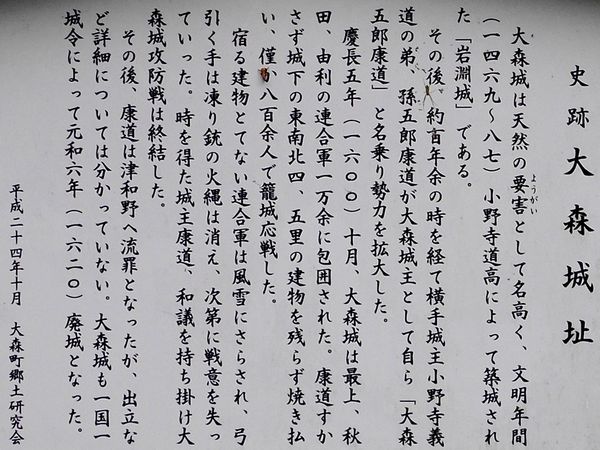 史跡 大森城址
大森城は天然の要害として名高く、文明年間
ようがい
（一四六九～八七）小野寺道高によって築城され
た「岩淵城」である。
その後、約百年余の時を経て横手城主小野寺義
道の弟、孫五郎康道が大森城主として自ら「大森
五郎康道」と名乗り勢力を拡大した。
慶長五年（一六〇〇）十月、大森城は最上、秋
田、由利の連合軍一万余に包囲された。康道すか
さず城下の東南北四、五里の建物を残らず焼き払
い、僅か八百余人で籠城応戦した。
宿る建物とてない連合軍は風雪にさらされ、弓
引く手は凍り銃の火縄は消え、次第に戦意を失っ
ていった。時を得た城主康道、和議を持ち掛け大
森城攻防戦は終結した。
その後、康道は津和野へ流罪となったが、出立な
ど詳細については分かっていない。大森城も一国一
城令によって元和六年（一六二〇）廃城となった。
平成二十四年十月 大森町郷土研究会